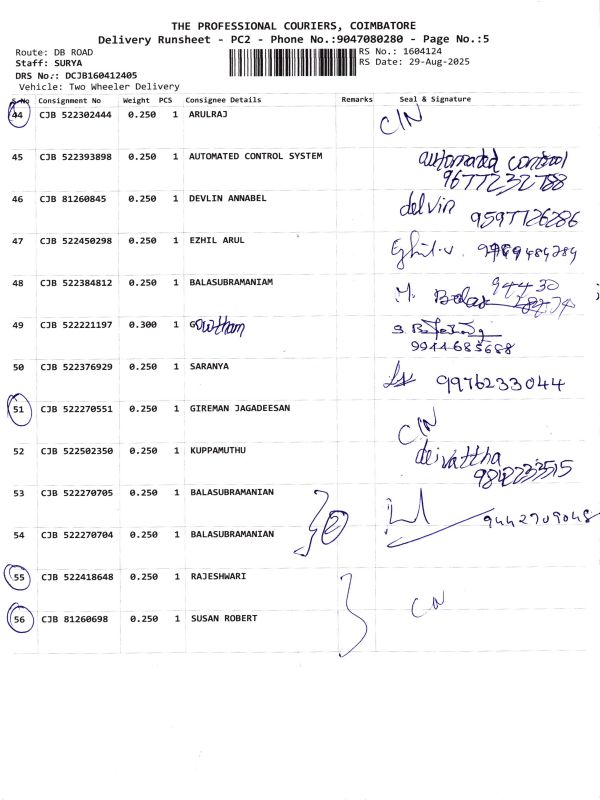 THE PROFESSIONAL COURIERS, COIMBATORE
Delivery Runsheet - PC2 - Phone No.:9047080280 - Page No.:5
Route: DB ROAD
Staff: SURYA
DRS No.: DCJB160412405
Vehicle: Two Wheeler Delivery
RS No.: 1604124
RS Date: 29-Aug-2025
S.No Consignment No Weight PCS Consignee Details Remarks Seal & Signature
44 CJB 522302444 0.250 1 ARULRAJ C/N
45 CJB 522393898 0.250 1 AUTOMATED CONTROL SYSTEM automated control
9677232788
46 CJB 81260845 0.250 1 DEVLIN ANNABEL delvin
9597726286
47 CJB 522450298 0.250 1 EZHIL ARUL
48 CJB 522384812 0.250 1 BALASUBRAMANIAM M. Balas 94430
49 CJB 522221197 0.300 1 Gowtham
9944685688
50 CJB 522376929 0.250 1 SARANYA 9976233044
51 CJB 522270551 0.250 1 GIREMAN JAGADEESAN C/N
52 CJB 522502350 0.250 1 KUPPAMUTHU deivattha
9842233515
53 CJB 522270705 0.250 1 BALASUBRAMANIAN 2 9442709048
54 CJB 522270704 0.250 1 BALASUBRAMANIAN
55 CJB 522418648 0.250 1 RAJESHWARI C/N
56 CJB 81260698 0.250 1 SUSAN ROBERT